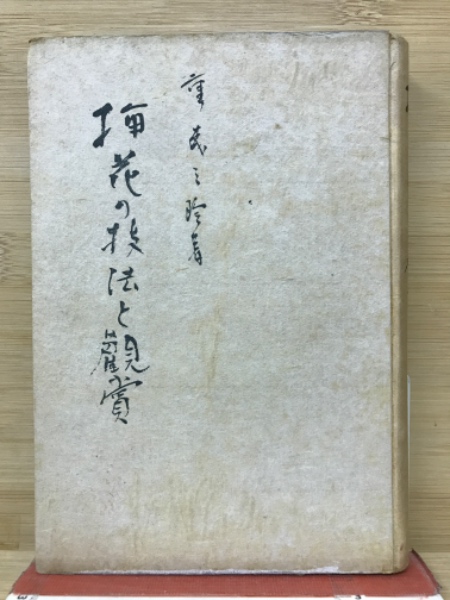 重森三玲著
挿花の技法と觀賞